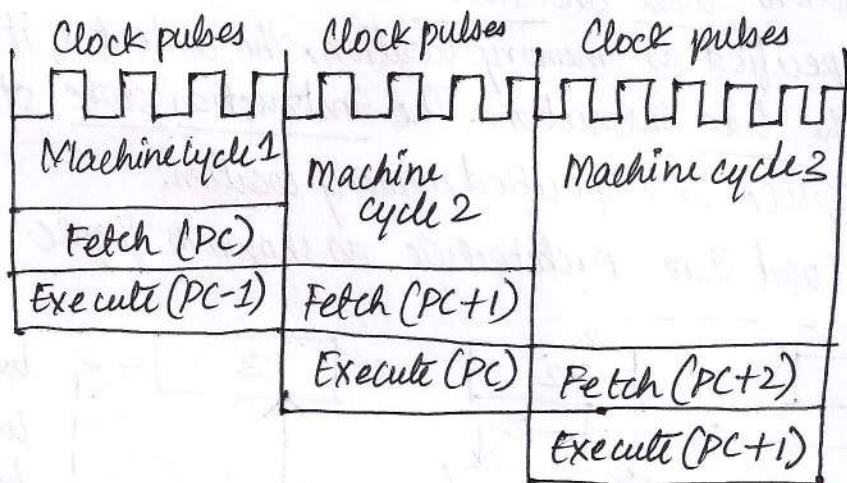 Clock pulses Clock pulses Clock pulses
Machine cycle 1
Machine cycle 2
Machine cycle 3
Fetch (PC)
Execute (PC-1)
Fetch (PC+1)
Execute (PC)
Fetch (PC+2)
Execute (PC+1)